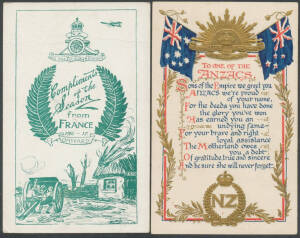 Compliments
of the
Season
from
FRANCE
TO ONE OF THE
ANZACS
Sons of the Empire we greet you
ANZACS we're proud
of your name,
For the deeds you have done
the glory you've won
Has earned you an
undying fame
For your brave and right
loyal assistance
The Motherland owes
you a debt
Of gratitude true and sincere
and be sure she will never forget.
NZ